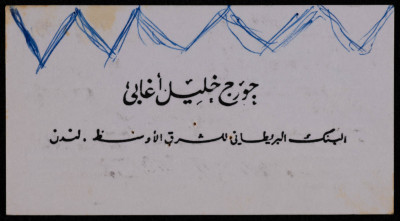 جورج خليل أغابي
البنك البريطاني للشرق الأوسط . لندن